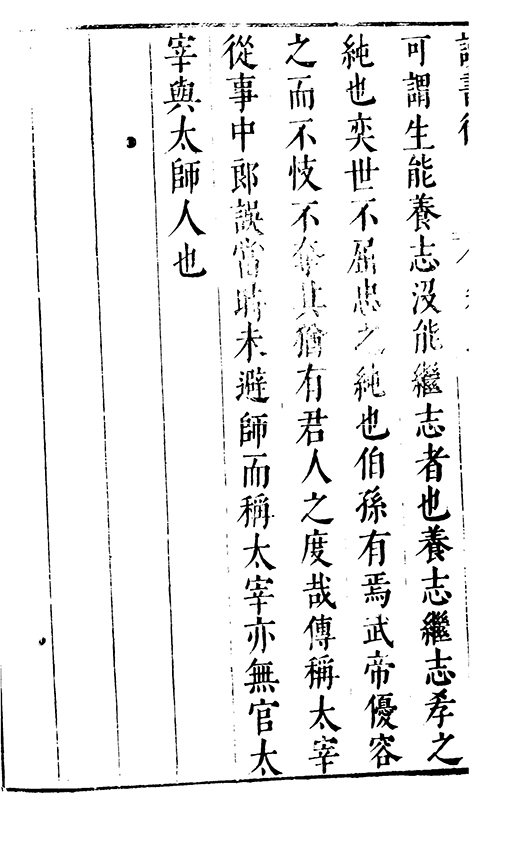 讀書後
可謂生能養志沒能繼志者也養志繼志孝之
純也奕世不屈忠之純也伯孫有焉武帝優容
之而不忮不奪其猶有君人之度哉傳稱太宰
從事中郎誤當時未避師而稱太宰亦無官太
宰與太師人也